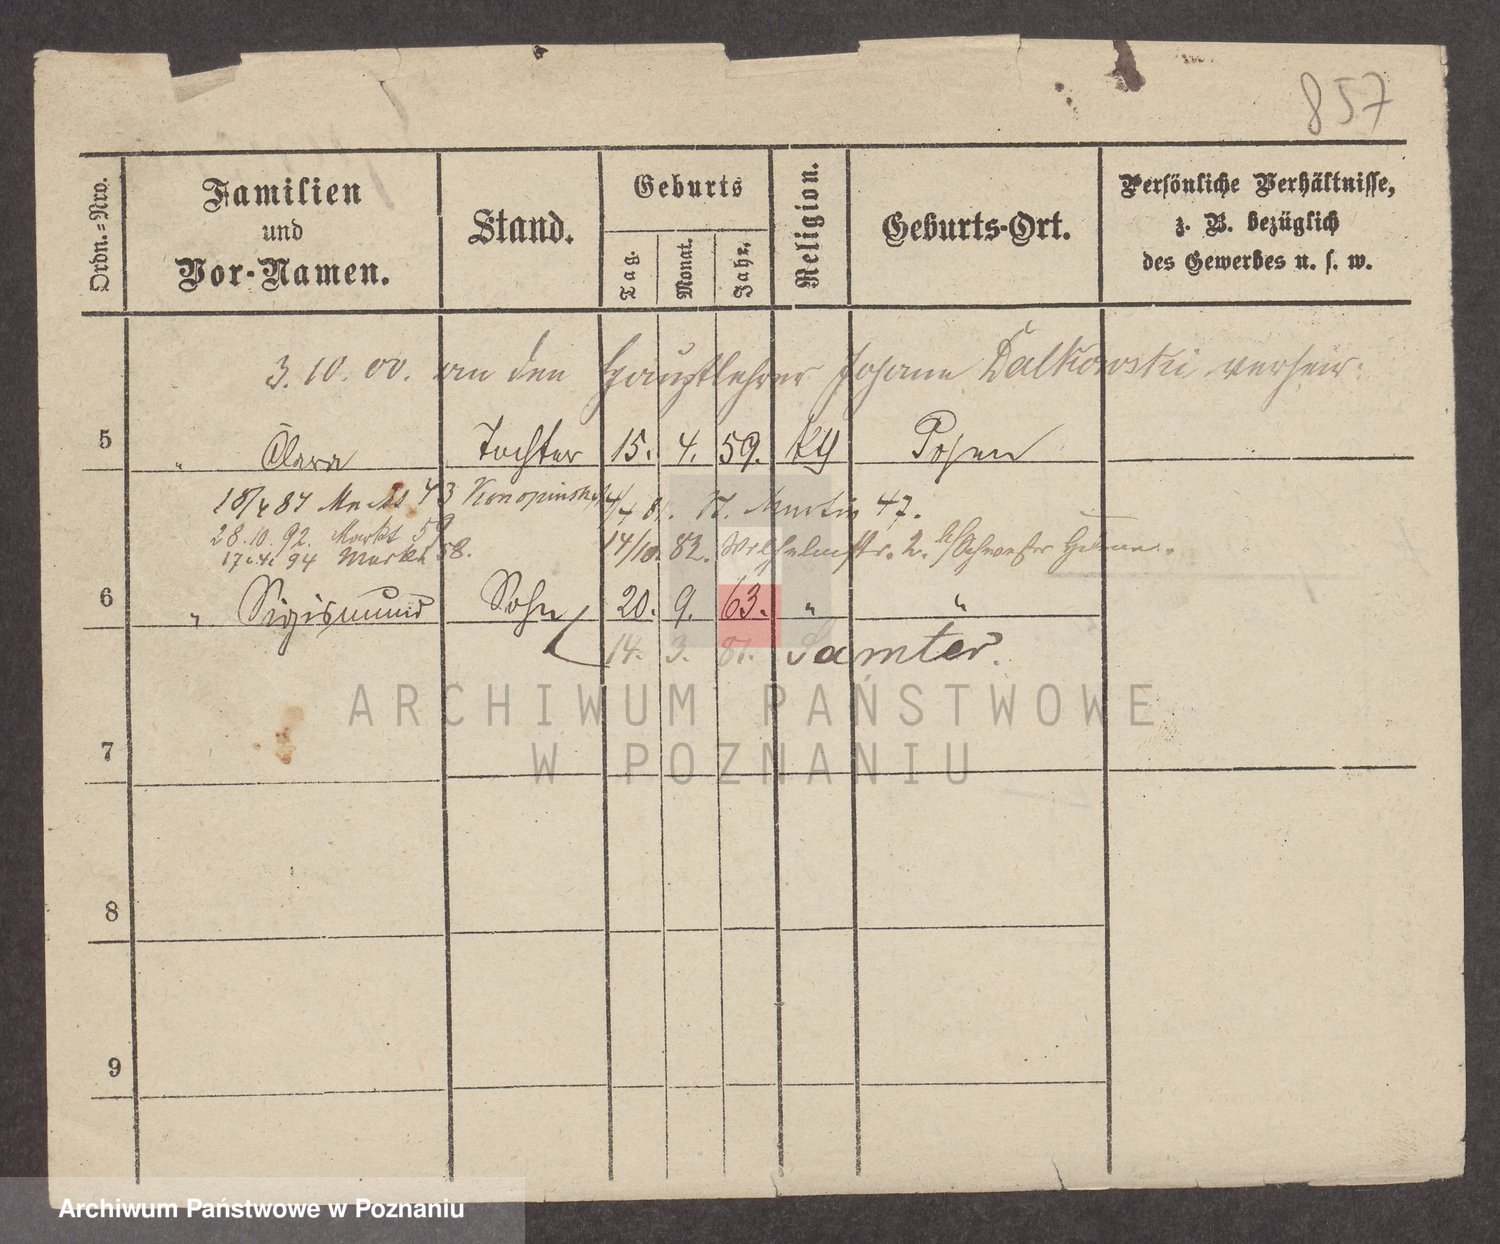 857
Ordn.-Nro.
Familien
und
Vor-Namen.
Stand.
Geburts
Tag.
Monat.
Jahr.
Religion.
Geburts-Ort.
Persönliche Verhältnisse,
z. B. bezüglich
des Gewerbes u. s. w.
3.10.00. an den Hauptlehrer Johann Dalkowski verheir.
5 " Clara Tochter 15. 4. 59. Posen
18/4 87 Markt 43 Konopinski 4/4 81. St. Martin 47.
28.10.92. Markt 59
14/10. 82. Wilhelmstr. 2. b/Schwester
17.4. 94 Markt 58.
6 " Sigismund Sohn 20. 9. 63. " "
14. 3. 81. Samter.
ARCHIWUM PAŃSTWOWE
W POZNANIU
7
8
9
Archiwum Państwowe w Poznaniu